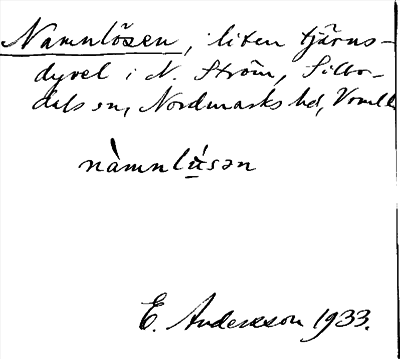 Namnlösen, liten tjärns-
dyvel i N. Ström, Silbo-
dals sn, Nordmarks hd, Vrml.
nàmnlú̠sən
E. Andersson 1933.